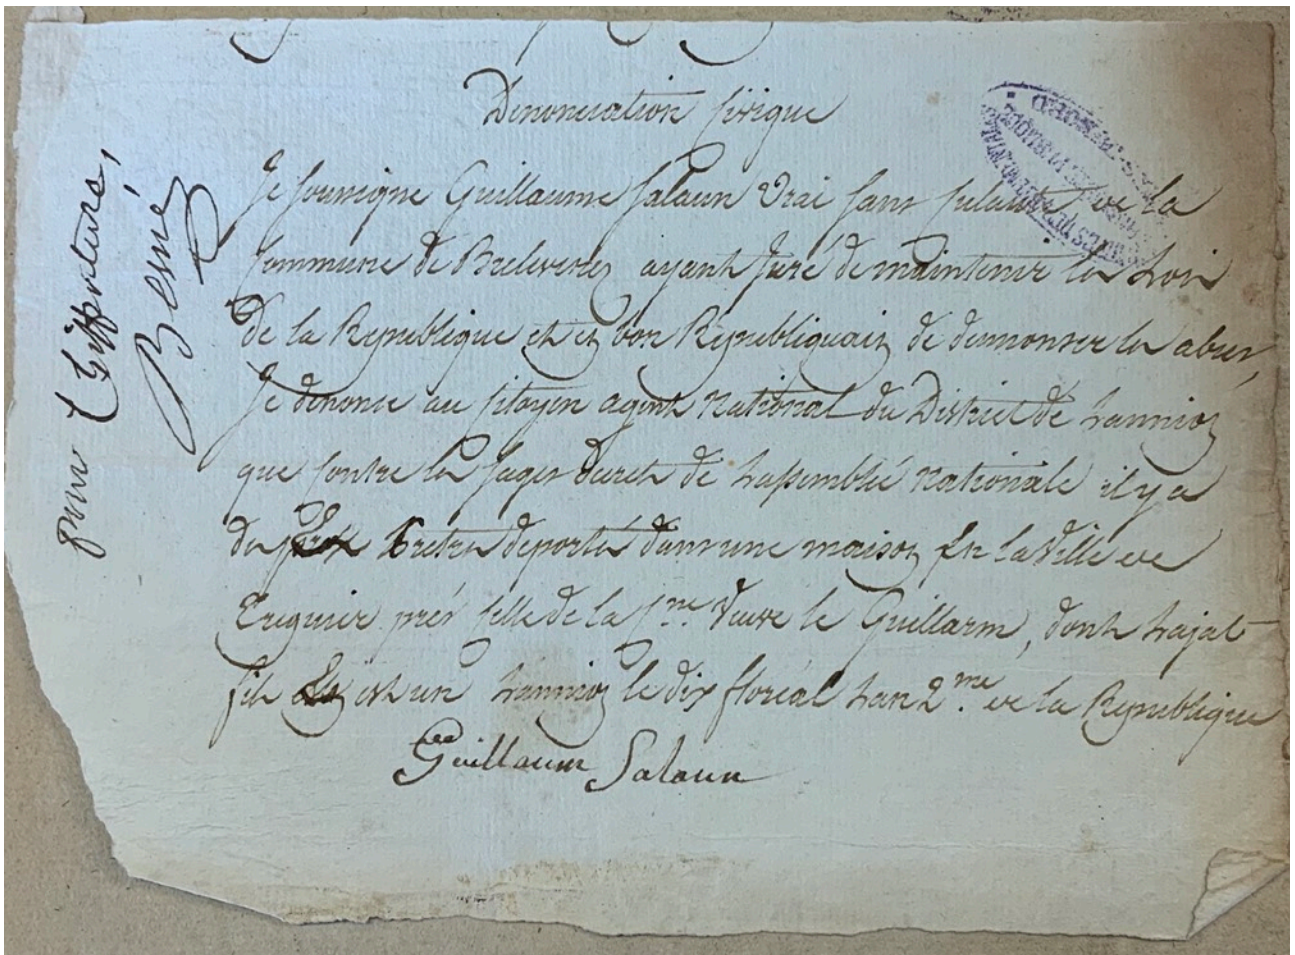 Denonciation civique
Je sousigne Guillaume Salaun vrai sans culautte de la
Commune de Brelevenez ayant Juré de maintenir les Lois
De la Republique et en bon Republiquain de denmonser les abus,
Je dénonse au citoyen agent National du District de Lannion
que contre les sages decrets de Lassemblée Nationale il y a
des Pretres deportés dans une maison En la Ville de
Treguier près celle de la Veuve le Guillarm, dont
fils est un Lannion le dix floréal Lan 2.me de la Republique
Guillaume Salaun
pour
Besné